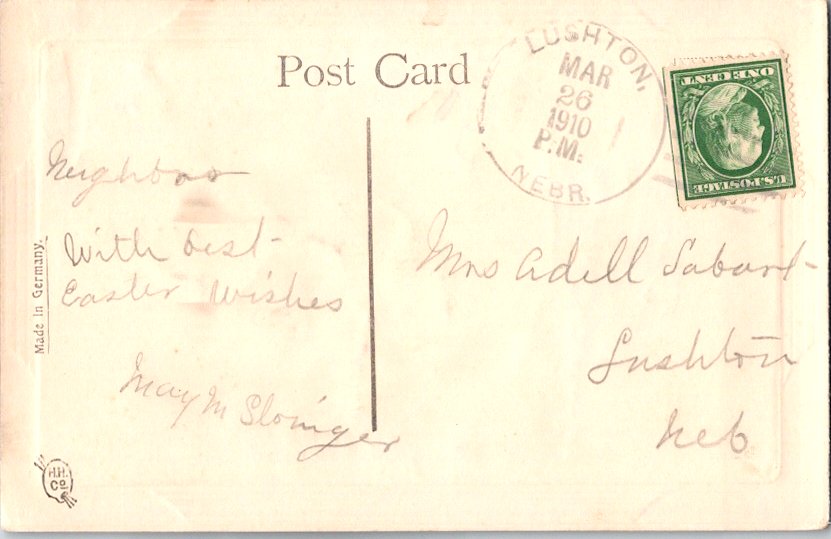 Post Card
LUSHTON,
MAR
26
1910
P.M.
NEBR.
ONE CENT
U.S. POSTAGE
Neighbor
With best
Easter Wishes
May M
Made in Germany.
H.H.
Co
Mrs Adell
Lushton
Neb